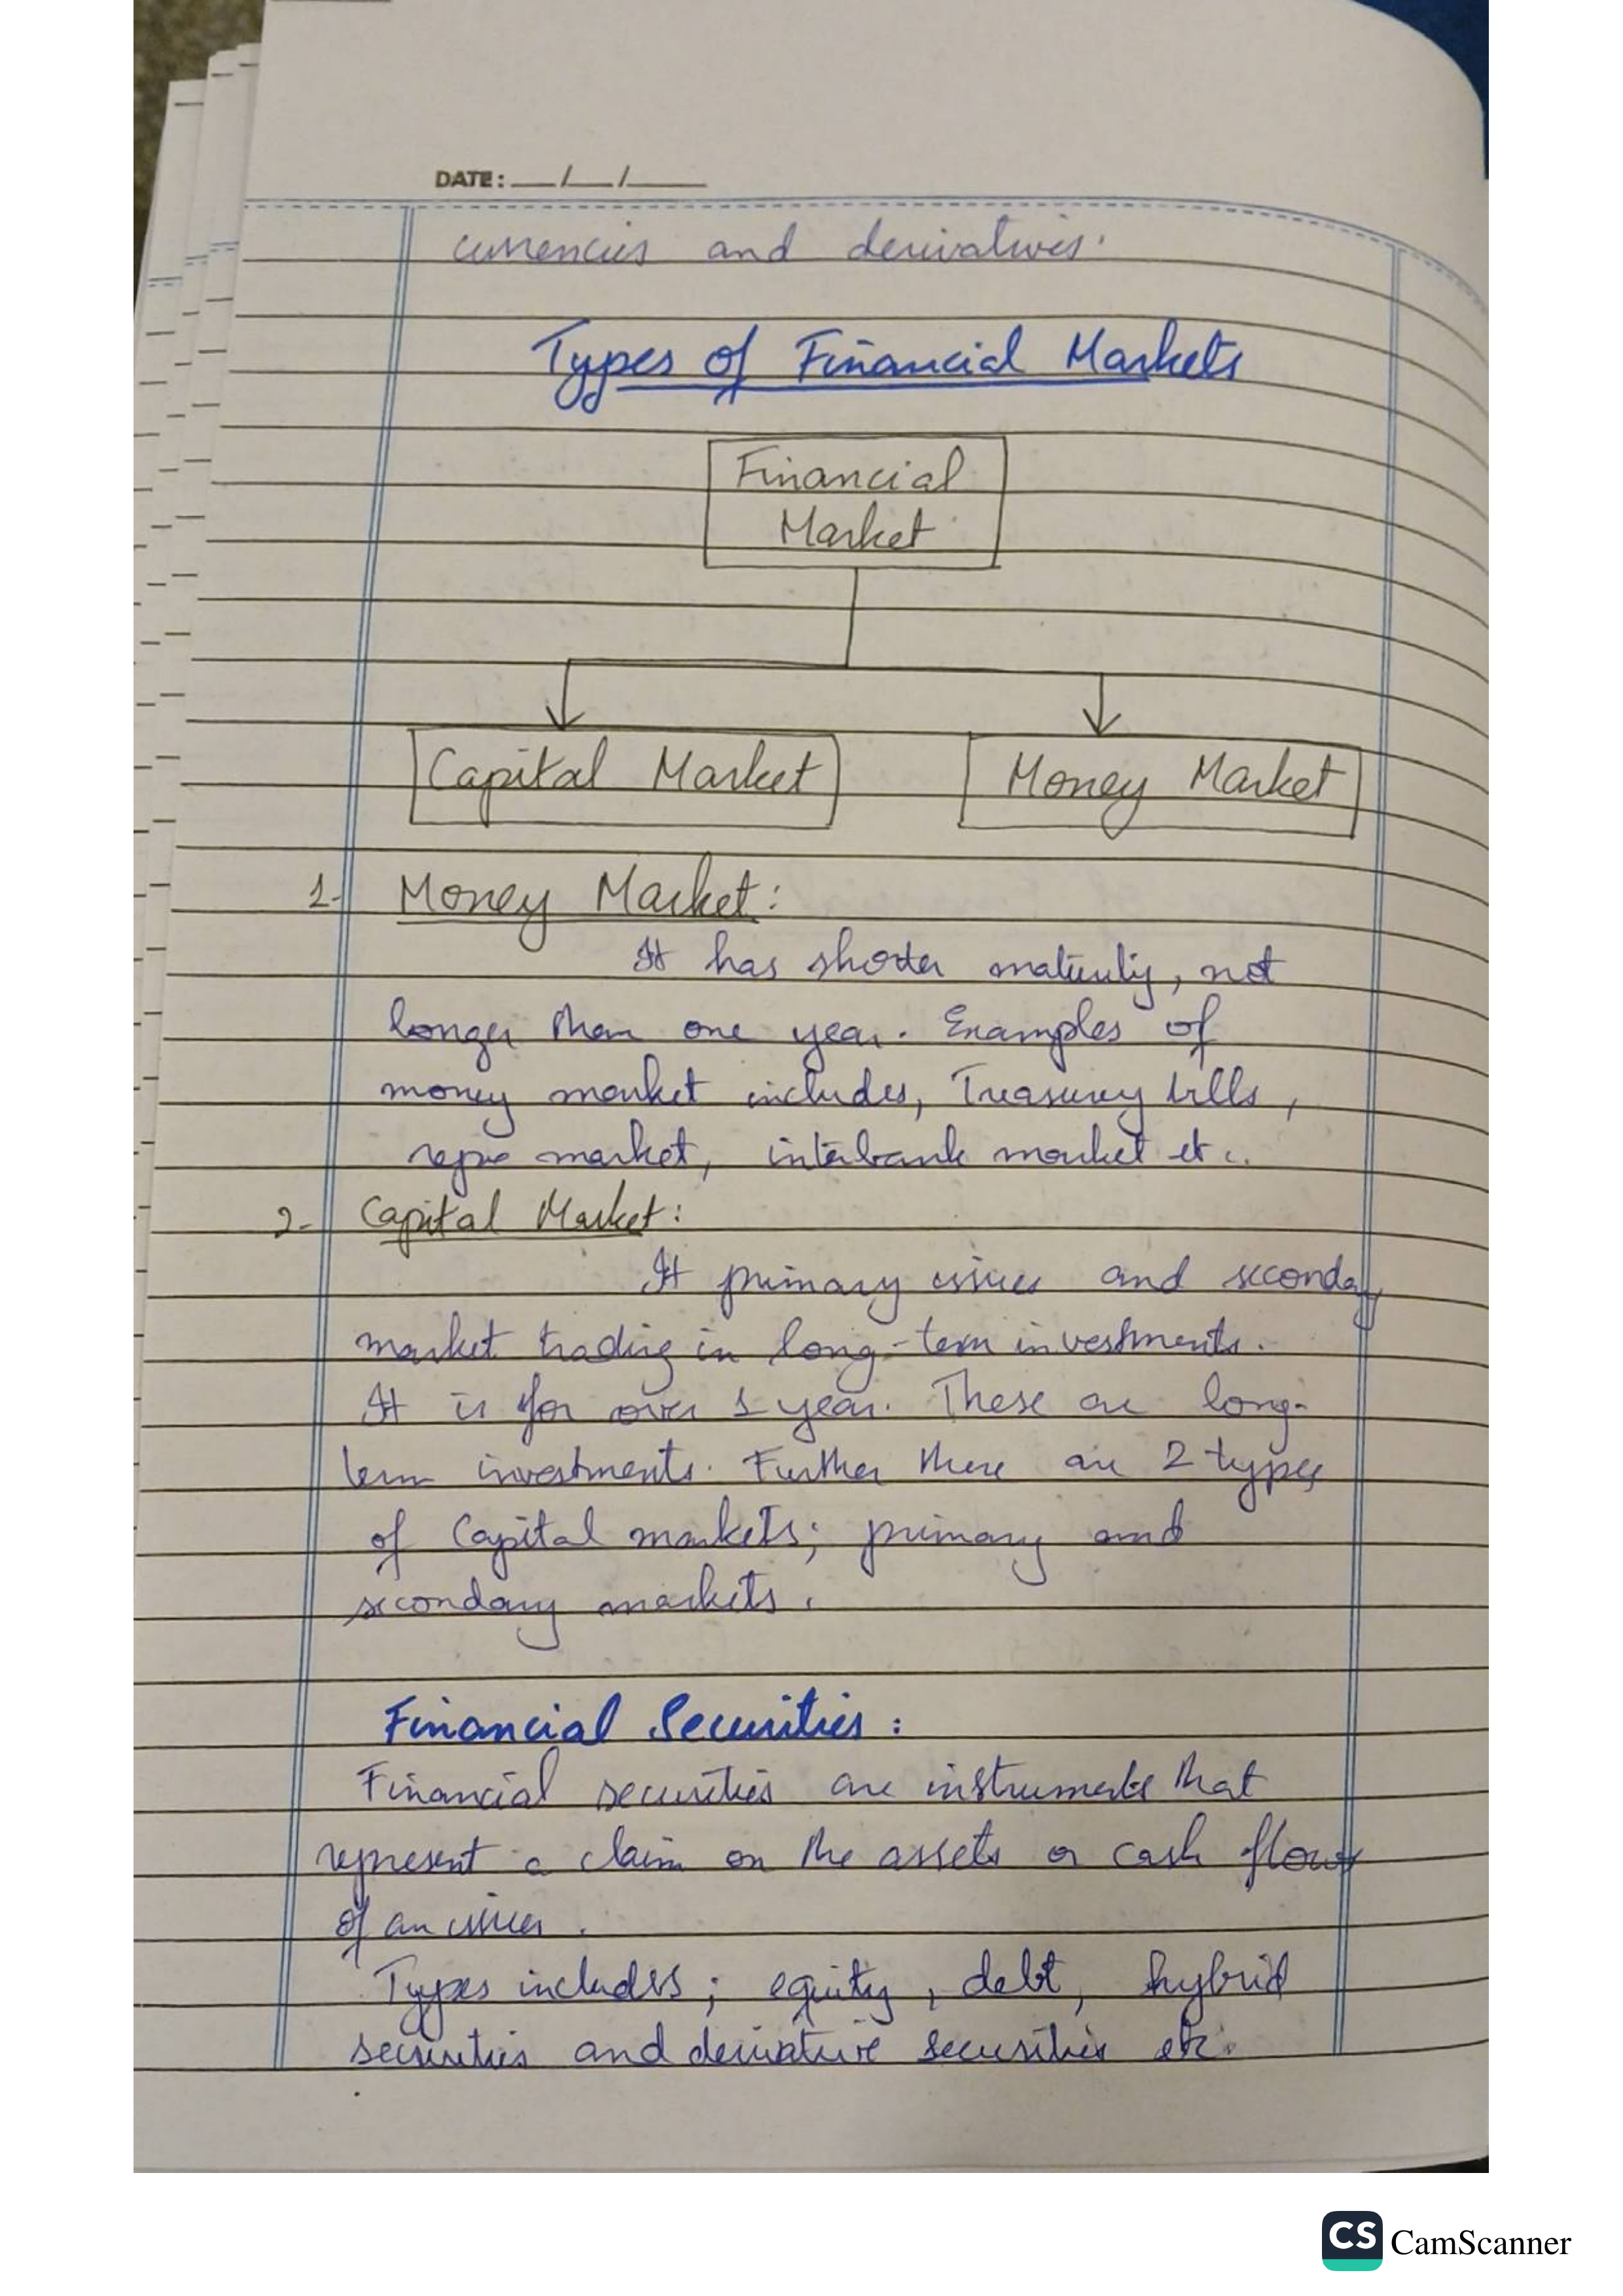 DATE: __/__/____
currencies and derivatives.
Types of Financial Markets
Financial
Market
Capital Market
Money Market
1- Money Market:
It has shorter maturity, not
longer than one year. Examples of
money market includes, Treasury bills,
repo market, interbank market etc..
2- Capital Market:
It primary issues and seconday
market trading in long-term investments.
It is for over 1 year. These are long-
term investments. Further there are 2 types
of Capital markets; primary and
secondary markets.
Financial Securities:
Financial securities are instruments that
represent a claim on the assets or cash flows
of an issuer.
Types includes; equity, debt, hybrid
securities and derivative securities etc.
CS CamScanner